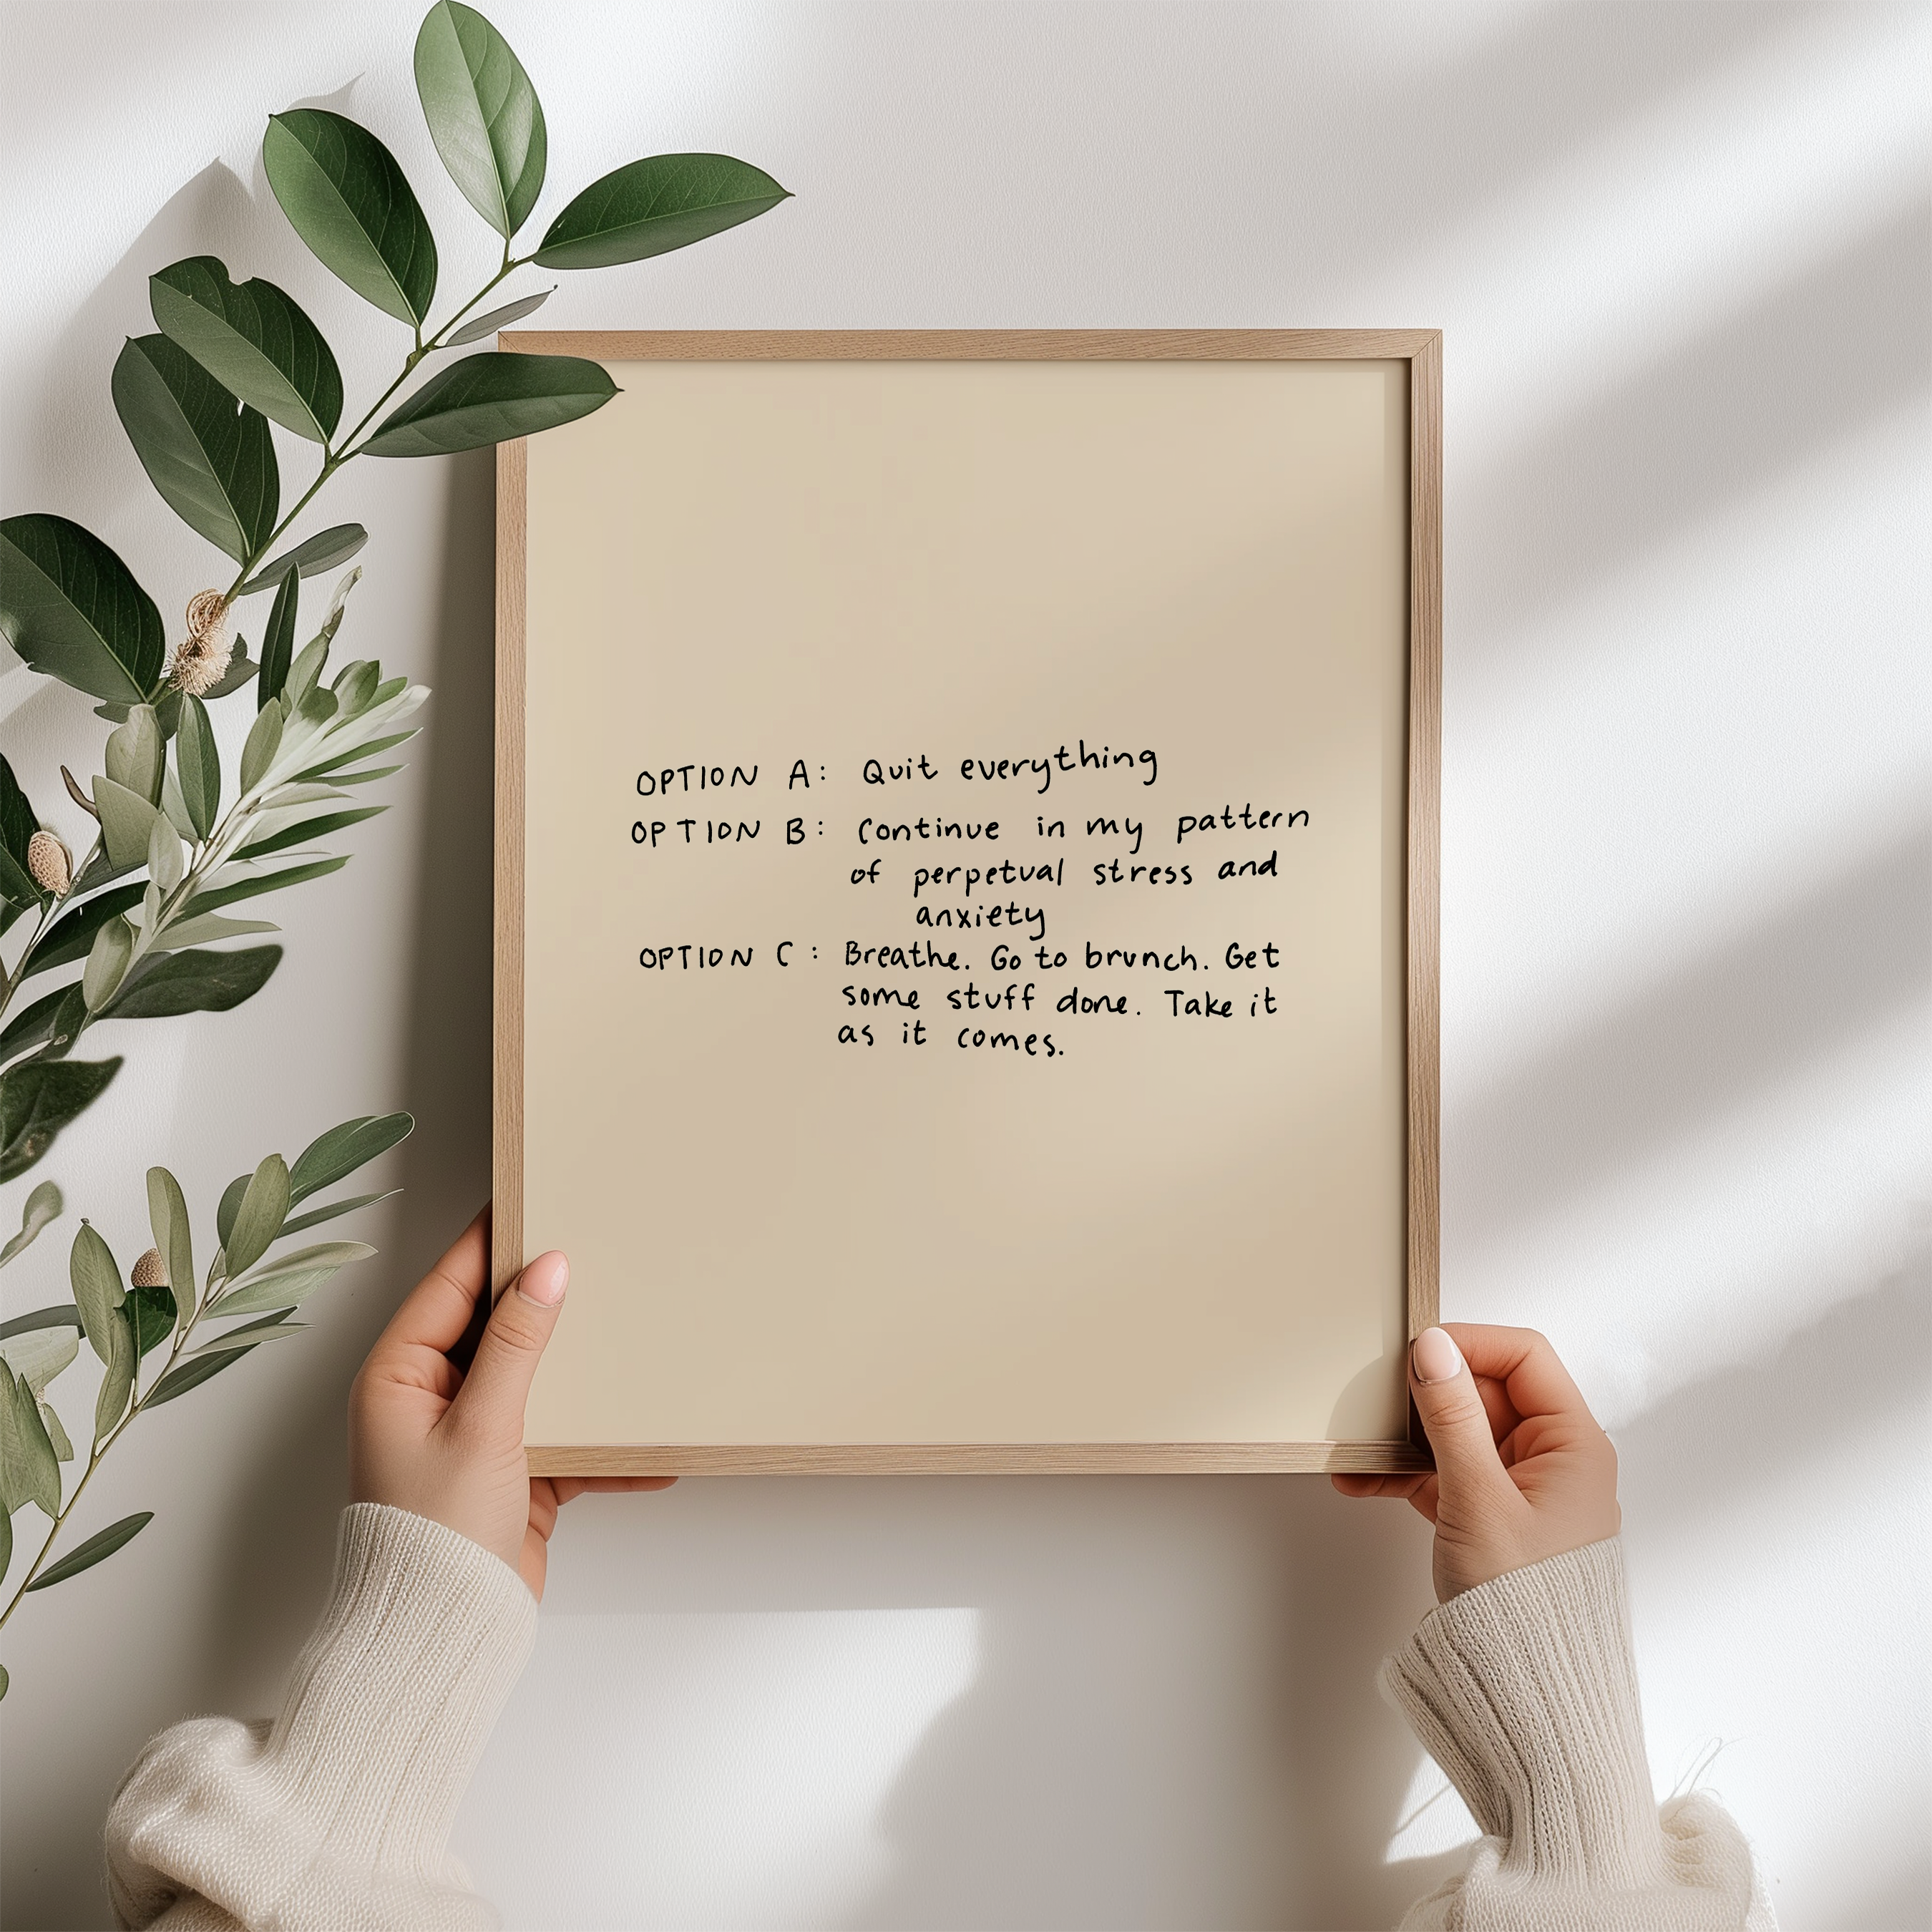 OPTION A: Quit everything
OPTION B: Continue in my pattern
of perpetual stress and
anxiety
OPTION C: Breathe. Go to brunch. Get
some stuff done. Take it
as it comes.